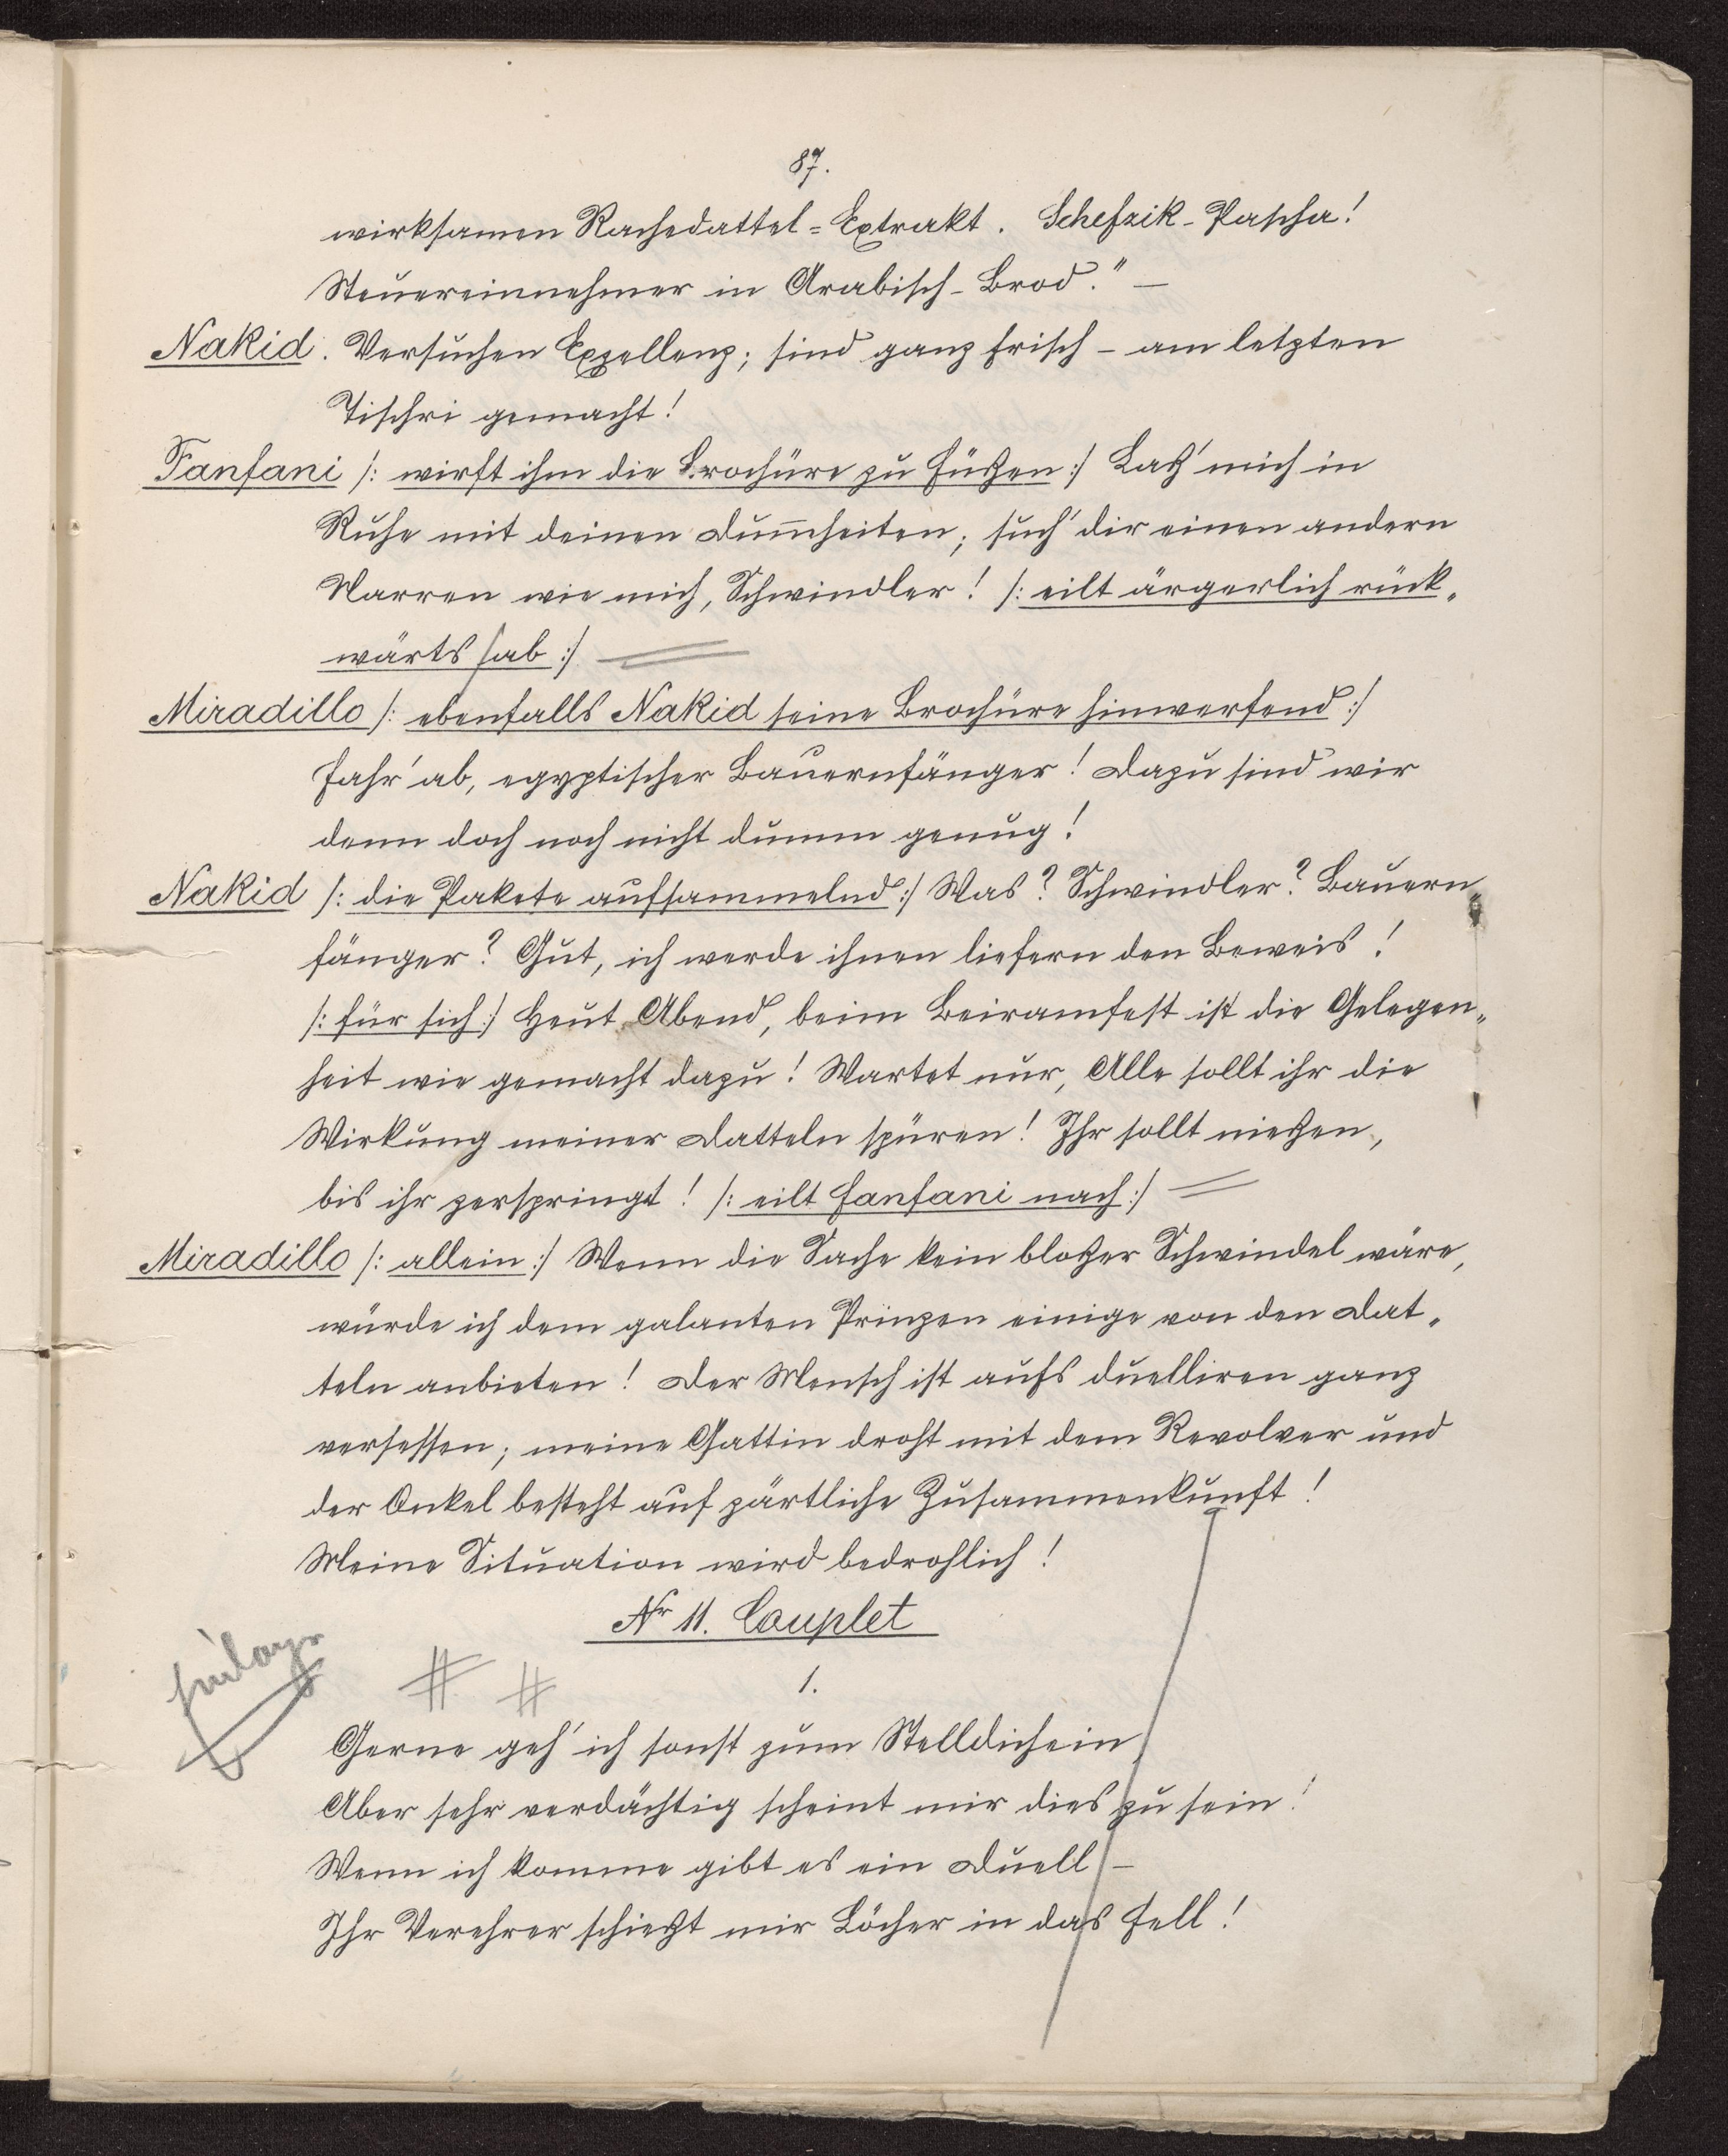 87.
wirksamen Rachedattel=Extrakt. Schefzik-Pascha!
Steuereinnehmer in Arabisch-Brod." —
Nakid. Versuchen Exzellenz; sind ganz frisch – am letzten
Tischri gemacht!
Fanfani /: wirft ihm die Brochüre zu Füßen :/ Laß' mich in
Ruhe mit deinen Dum̅heiten; such' dir einen andern
Narren wie mich, Schwindler! /: eilt ärgerlich rück„
wärts ab :/
Miradillo /: ebenfalls Nakid seine Brochüre hinwerfend :/
Fahr' ab, egyptischer Bauernfänger! Dazu sind wir
denn doch noch nicht dumm genug!
Nakid /: die Pakete aufsammelnd :/ Was? Schwindler? Bauern„
fänger? Gut, ich werde ihnen liefern den Beweis!
/: für sich :/ Heut Abend, beim Beiramfest ist die Gelegen„
heit wie gemacht dazu! Wartet nur, Alle sollt ihr die
Wirkung meiner Datteln spüren! Ihr sollt nießen,
bis ihr zerspringt! /: eilt Fanfani nach :/
Miradillo /: allein :/ Wenn die Sache kein bloßer Schwindel wäre,
würde ich dem galanten Prinzen einige von den Dat„
teln anbieten! Der Mensch ist aufs duelliren ganz
versessen; meine Gattin droht mit dem Revolver und
der Onkel besteht auf zärtliche Zusammenkunft!
Meine Situation wird bedrohlich!
Nr 11. Couplet
1.
Gerne geh' ich sonst zum Stelldichein,
Aber sehr verdächtig scheint mir dies zu sein!
Wenn ich komme gibt es ein Duell –
Ihr Verehrer schießt mir Löcher in das Fell!